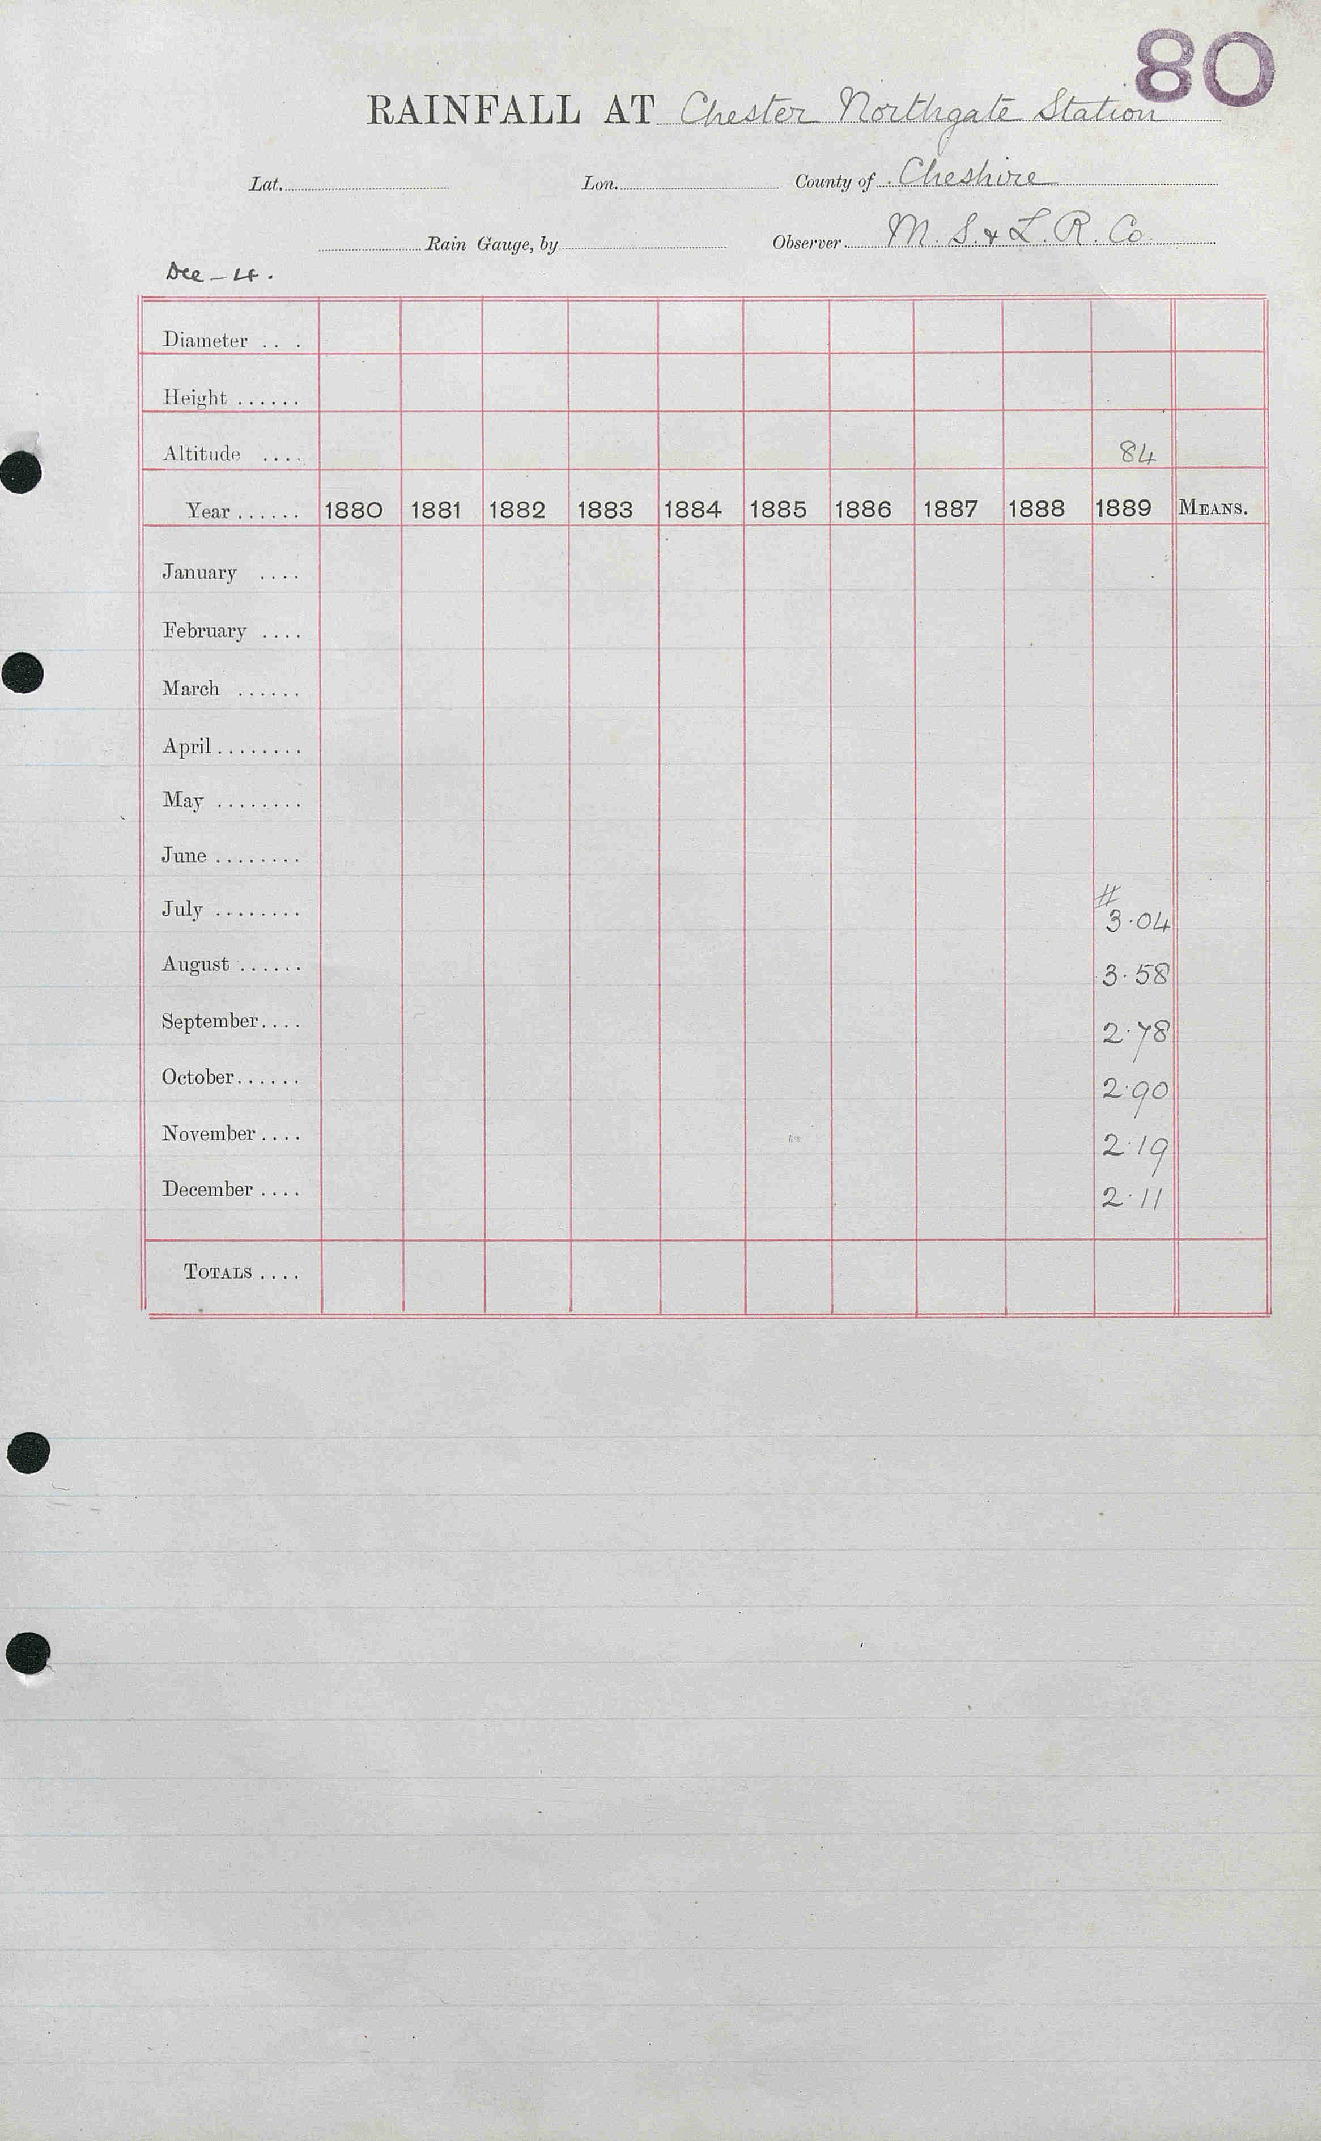 80
RAINFALL AT Chester Northgate Station
Lat. Lon. County of Cheshire
Rain Gauge, by Observer M. S. & L. R. Co.
Dee - 4.
Diameter
Height
Altitude 84
Year 1880 1881 1882 1883 1884 1885 1886 1887 1888 1889 MEANS.
January
February
March
April
May
June
July # 3.04
August 3.58
September 2.78
October 2.90
November 2.19
December 2.11
TOTALS